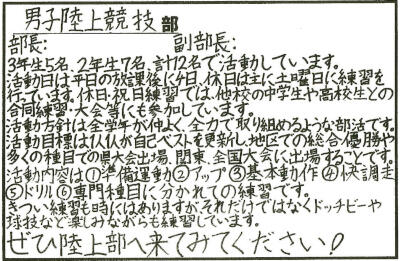 男子陸上競技部
部長: 副部長:
3年生5名、2年生7名、計12名で活動しています。
活動日は平日の放課後に4日、休日は主に土曜日に練習を
行っています。休日・祝日練習では、他校の中学生や高校生との
合同練習・大会等にも参加しています。
活動方針は全学年が仲よく、全力で取り組めるような部活です。
活動目標は1人1人が自己ベストを更新し、地区での総合優勝や
多くの種目での県大会出場、関東、全国大会に出場することです。
活動内容は①準備運動②アップ③基本動作④快調走
⑤ドリル⑥専門種目に分かれての練習です。
きつい練習も時にはありますが、それだけではなくドッチビーや
球技など楽しみながらも練習しています。
ぜひ陸上部へ来てみてください!